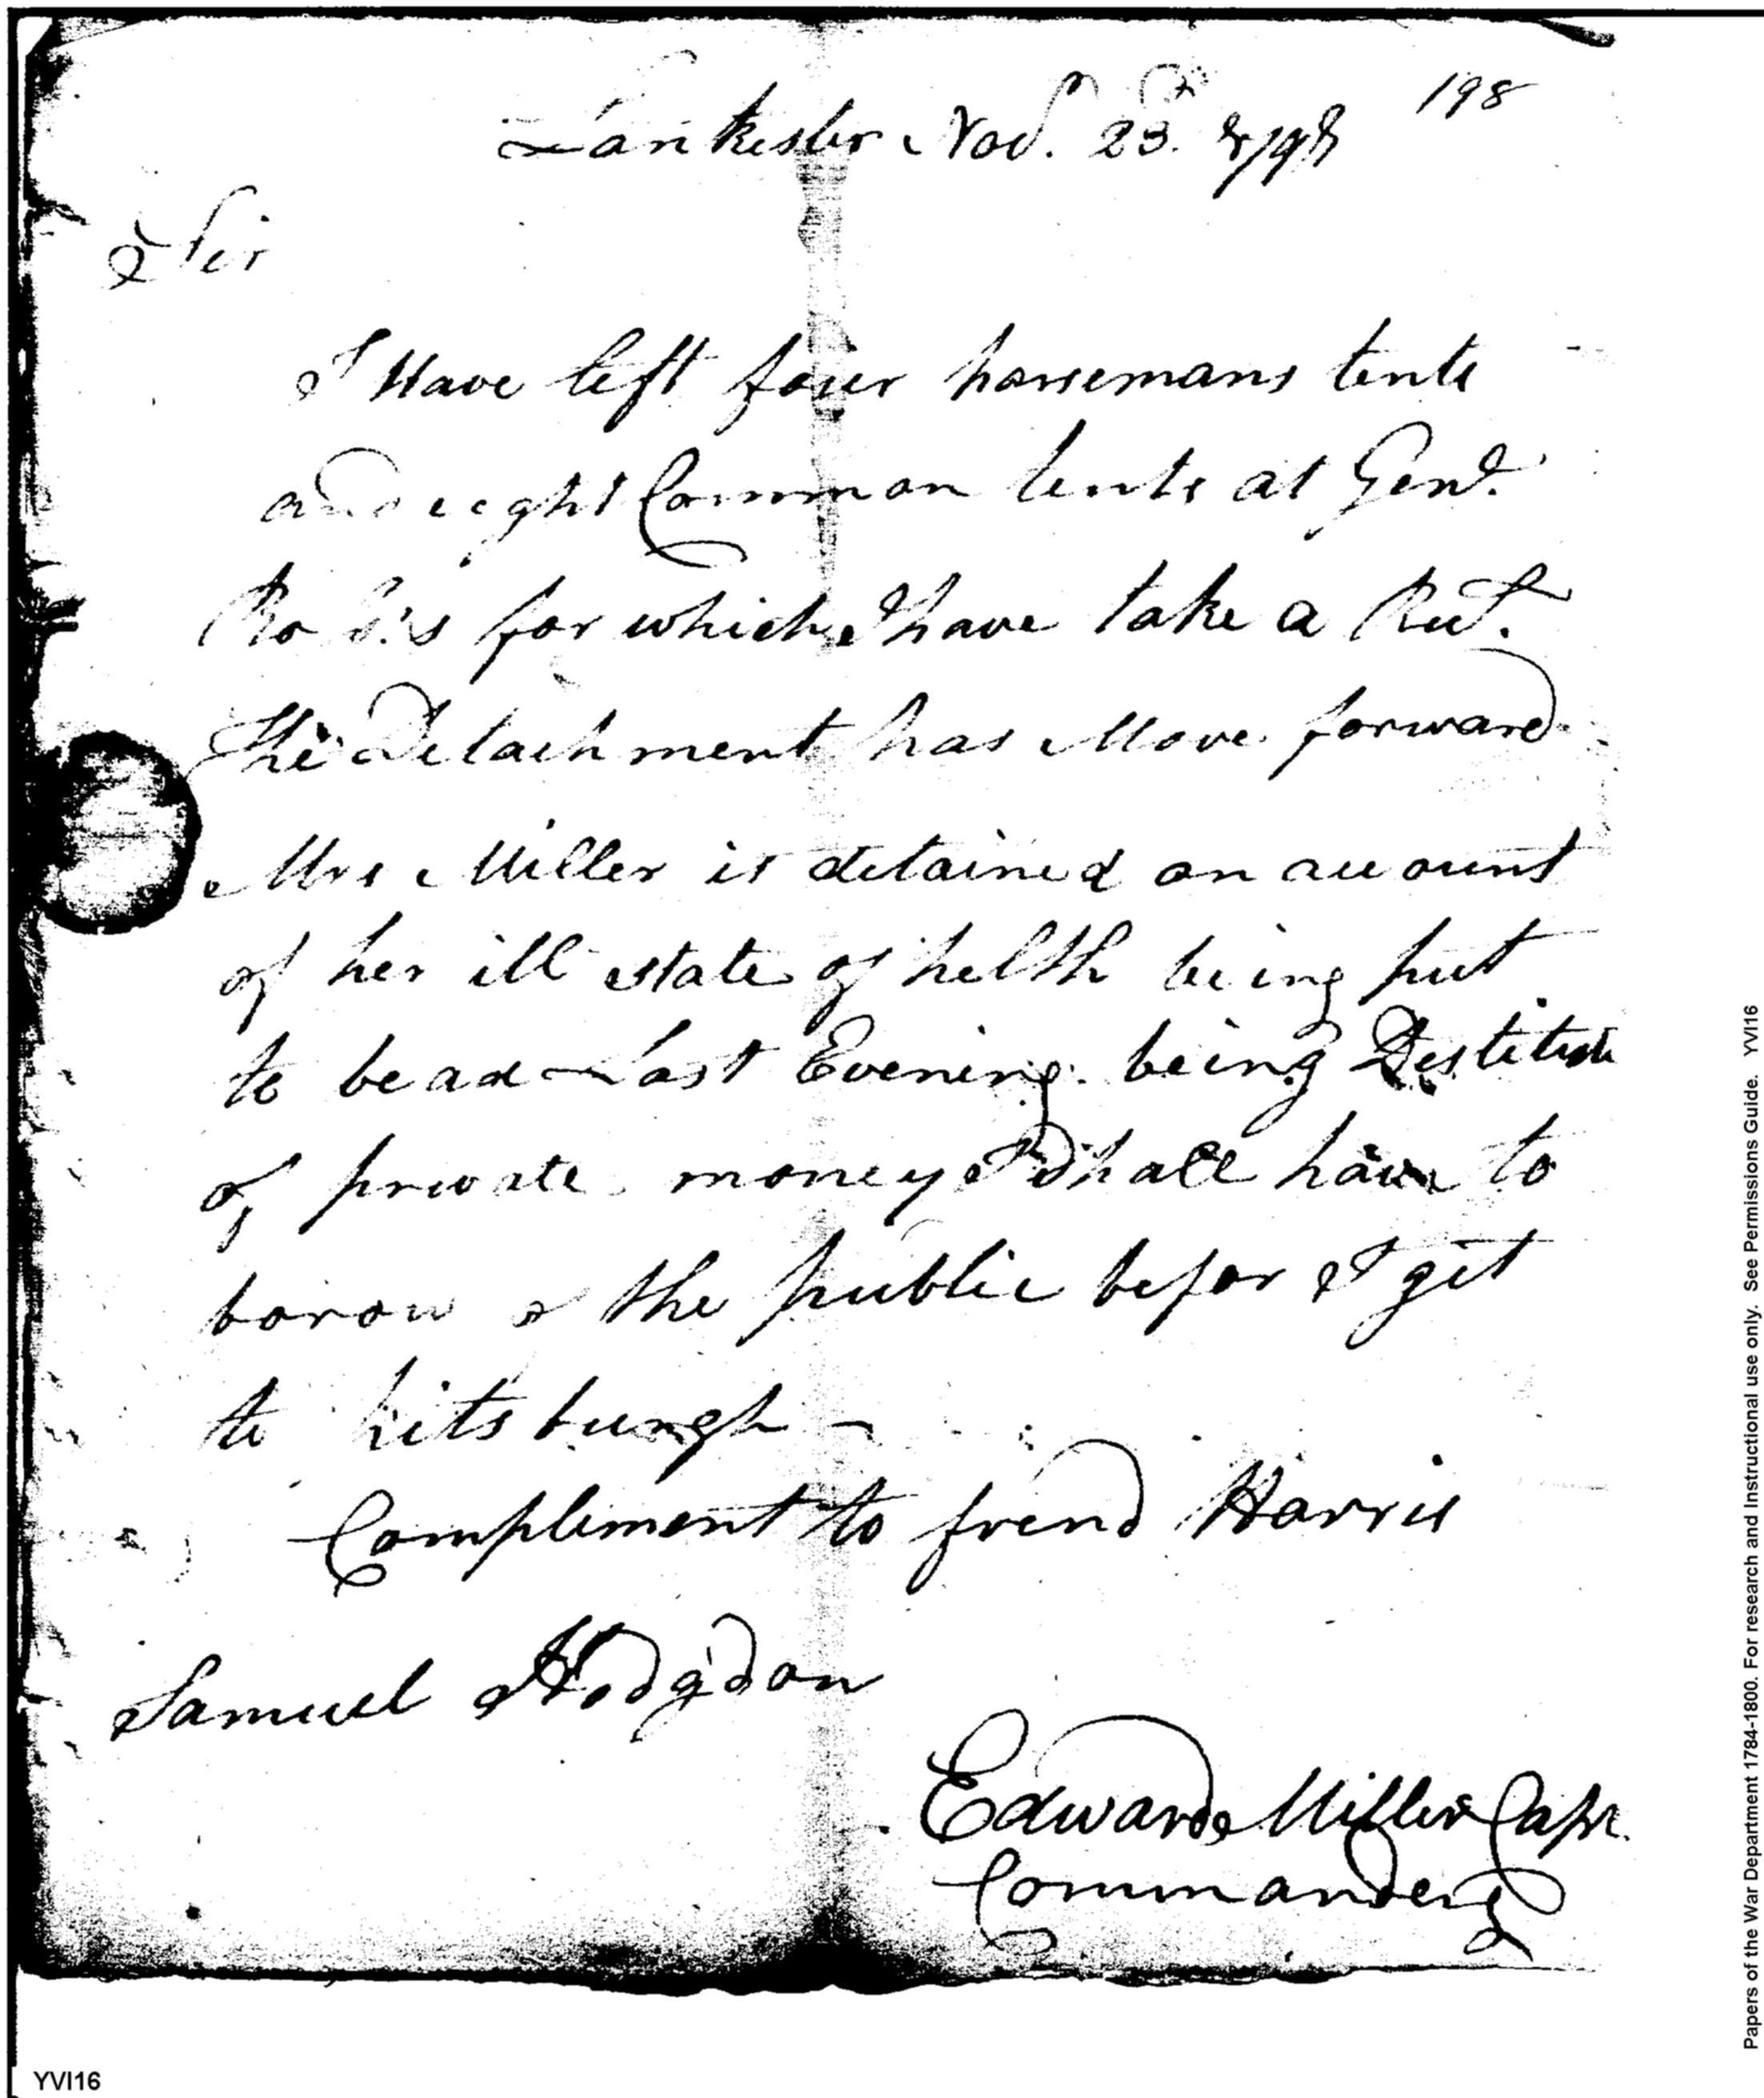 198
Lankester Nov. 23. 1798
Sir
I Have left four horsemans tents
and eeght Common tents at Genl.
for which I have take a Rect.
The Detachment has Move forward
Mrs Miller is detained on account
of her ill state of helth being put
to bead Last Evening. being Destitute
of private money I Shall have to
borow of the public befor I git
to pitsburgh -
Compliment to frend Harris
Samuel Hodgdon
Edward Miller Capt.
Commanderg
YVI16
Papers of the War Department 1784-1800. For research and Instructional use only. See Permissions Guide. YVI16